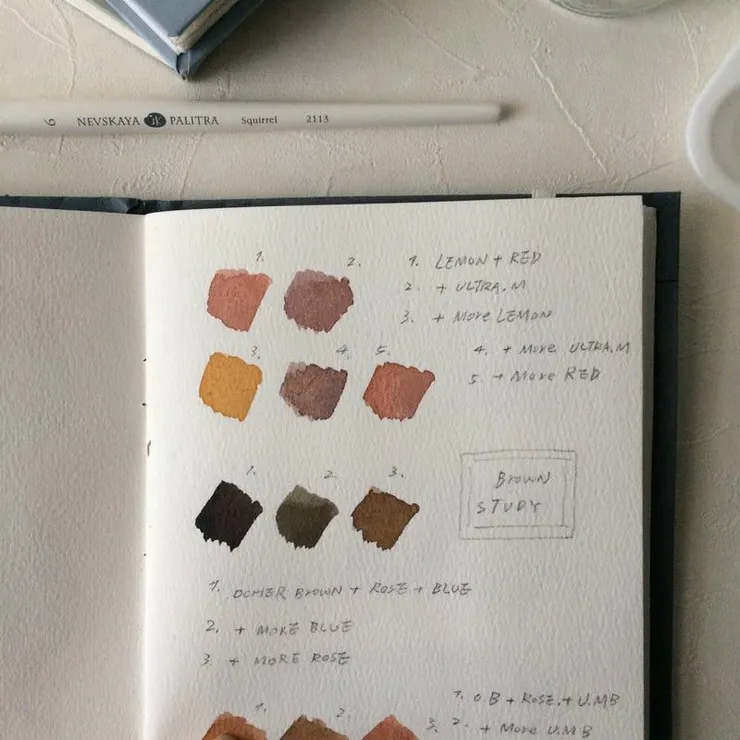 6 NEVSKAYA PALITRA Squirrel 2113
1. 2.
1. LEMON + RED
2. + ULTRA.M
3. + More LEMON
3. 4. 5.
4. + More ULTRA.M
5. + More RED
1. 2. 3.
BROWN
STUDY
1. OCHER BROWN + ROSE + BLUE
2. + MORE BLUE
3. + MORE ROSE
1. 2. 3.
1. O.B + ROSE. + U.MB
2. + More U.MB